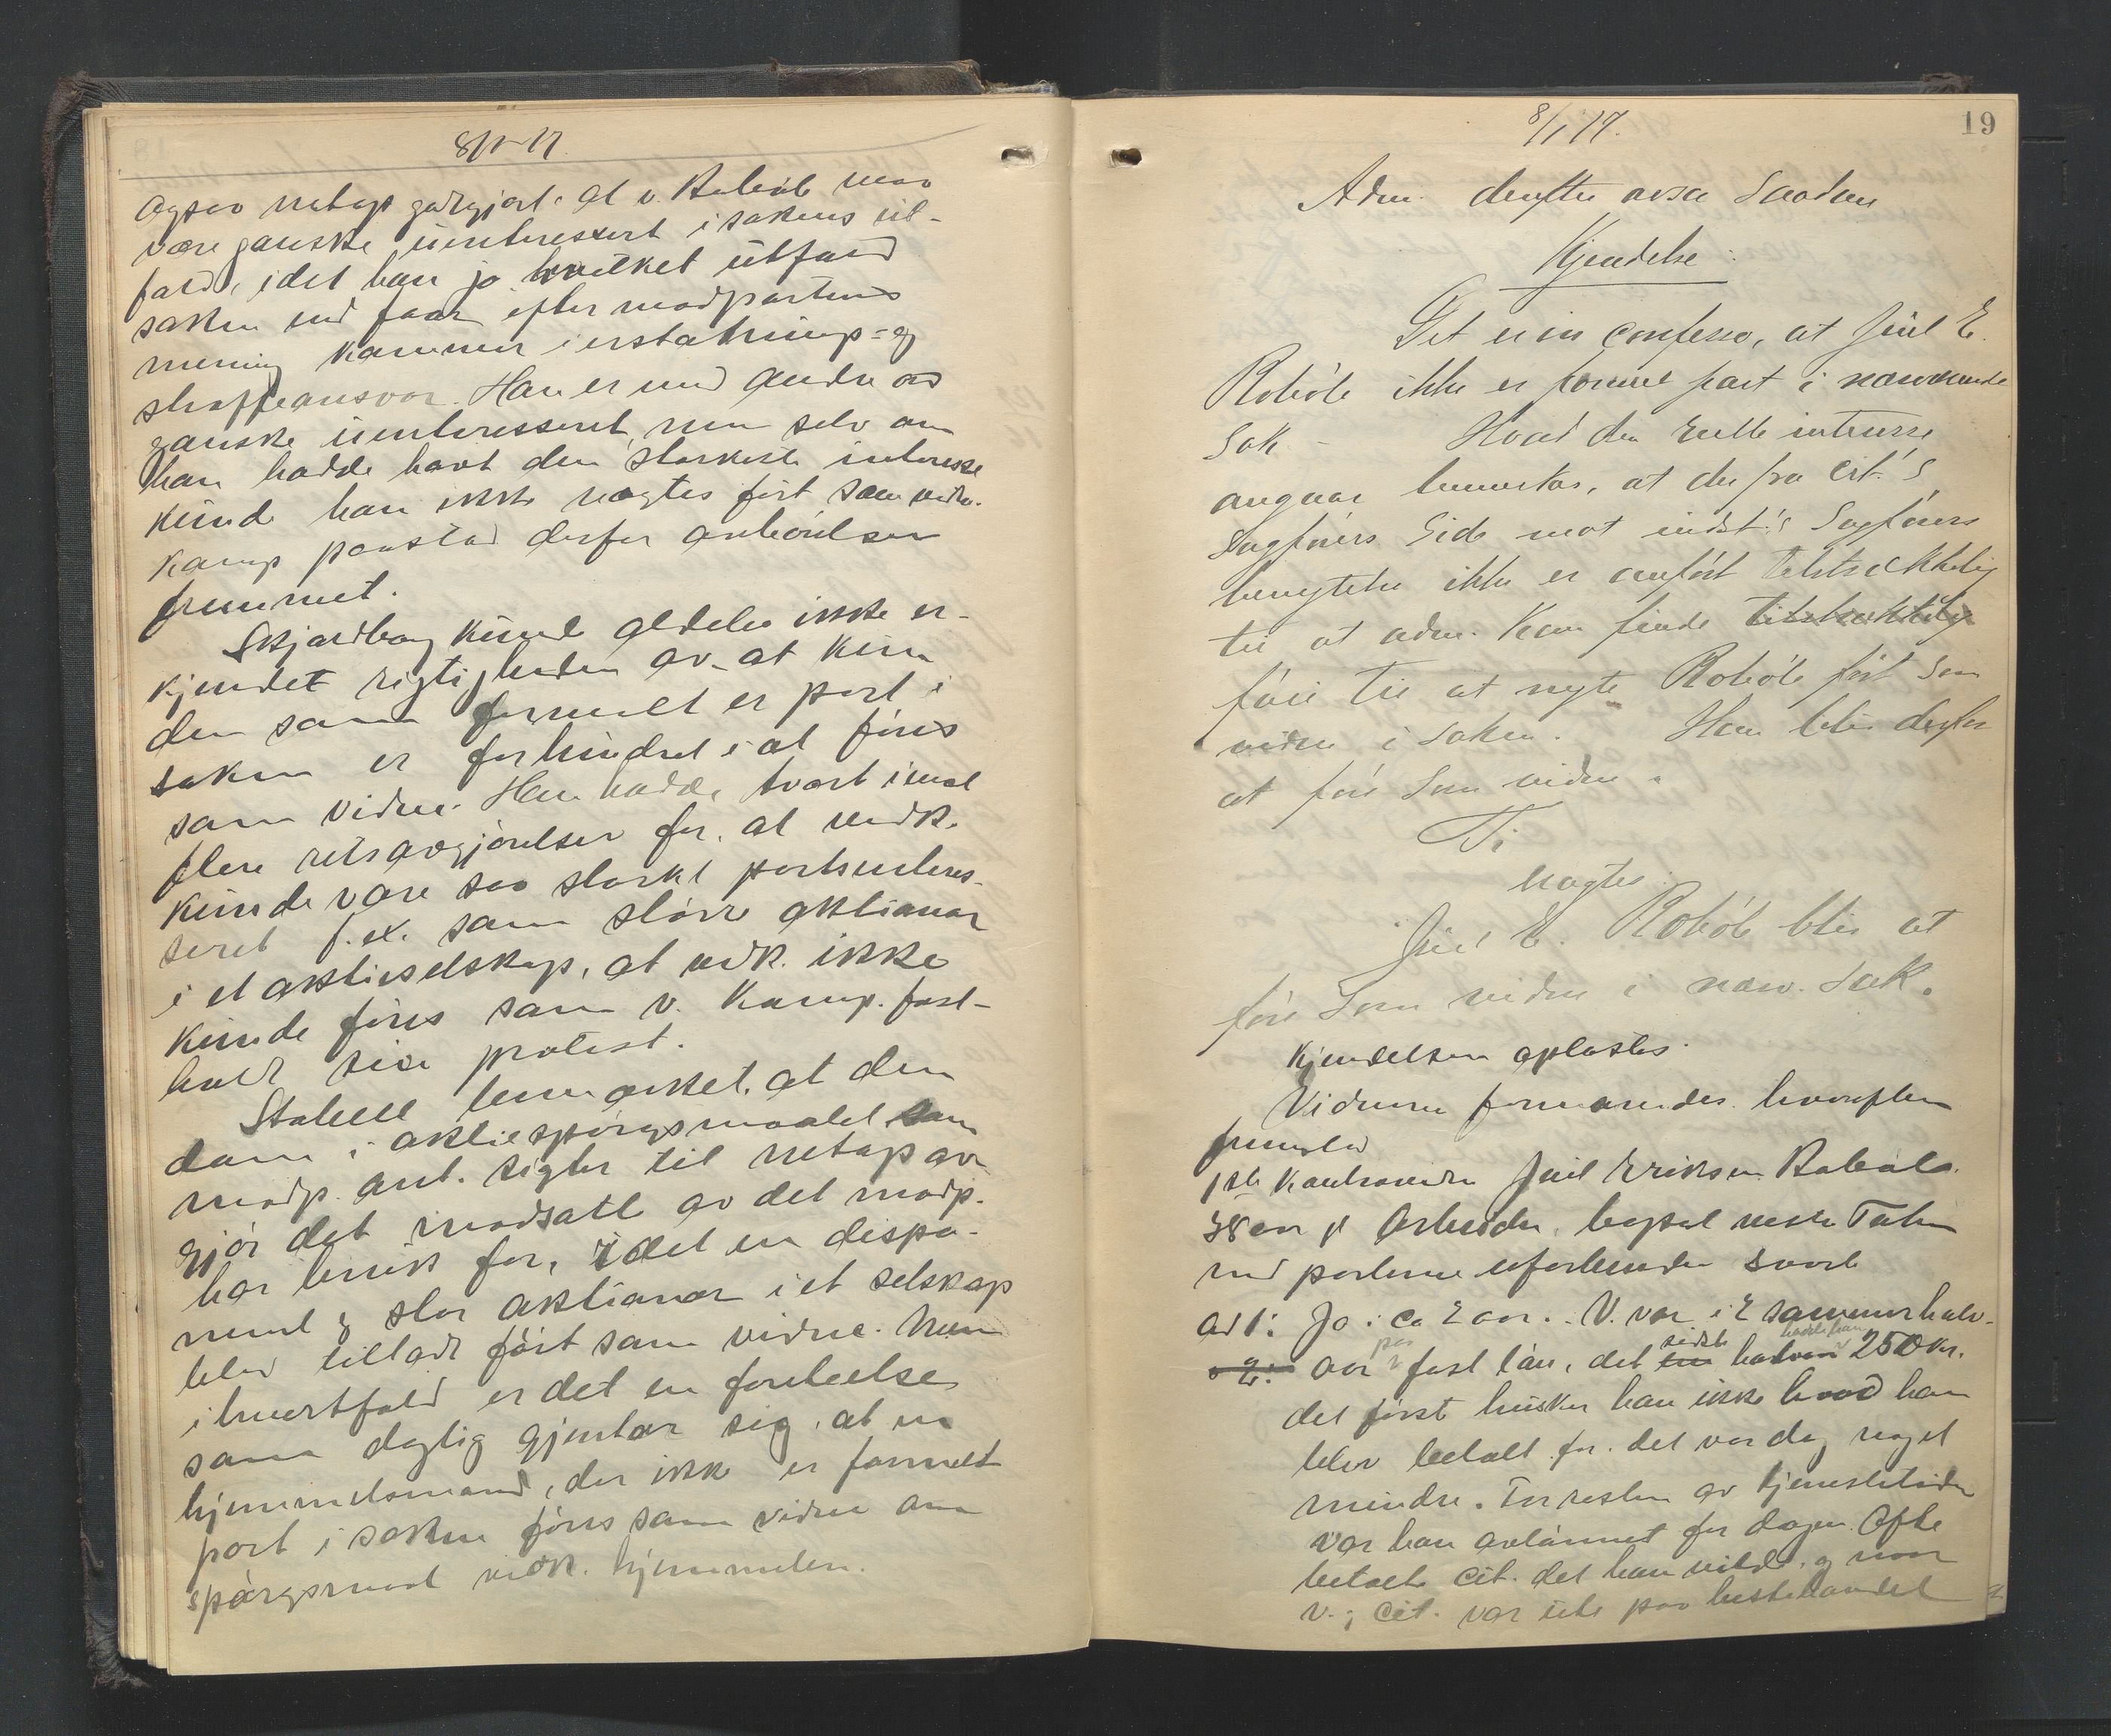 8/1-17
ogsaa netop godtgjort at v. Roböle maa
være ganske uinteressert i sakens ut-
fald, idet han jo hvilket utfald
saken end faar efter modpartens
mening kommer i erstatnings- og
straffeansvar. Han er med andre ord
ganske uinteresseret, men selv om
han hadde havt den störkeste interesse
kunde han ikke nægtes fört som vidne.
Kamp paastod derfor avhörelsen
fremmet.
Skjardborg kunde aldeles ikke er-
kjendet rigtigheden av at kun
den som formelt er part i
saken er forhindret i at föres
som vidne. Han hadde tvært imot
flere retsavgjörelser for, at vedk.
kunde være saa sterkt partsinteres-
seret f.ex. som större aktionær
i et aktieselskap, at vedk. ikke
kunde föres som v. Kamp. fast-
holdt sin protest.
Stabell bemerket, at den
dom i aktiespörgsmaalet som
modp. ant. sigter til netop av-
gjör det modsatte av det modp.
har bruk for, idet en dispo-
nent & stor aktionær i et selskap
blev tilladt fört som vidne. Men
ihvertfald er det en foreteelse
som daglig gjentar sig, at en
hjemmelsmand, der ikke er formelt
part i saken föres som vidne om
spörgsmaal vedk. hjemmelen.
8/1 17.
19
Adm. derefter avsa saadan
Kjendelse:
Det er in confesso, at Juel E.
Roböle ikke er formel part i nærværende
Sak - Hvad den reelle intresse
angaar bemerkes, at der fra Cit.'s
Sagförers Side mot indst.'s Sagförers
benegtelse ikke er anfört tilstrækkelig
til at adm. kan finde tilstrækkelig
föie til at negte Roböle fört som
vidne i saken. Han blir derfor
at före som vidne.
Ti
kjendes:
Juel E. Roböle blir at
före som vidne i nærv. Sak.
Kjendelsen oplæstes.
Vidnerne formanedes. hvorefter
fremstod
1ste Kontravidne Juel Eriksen Roböle.
38 aar g Arbeider, bopæl nestre Toten
med parterne uforbunden svart
ad 1: Jo i ca 2 aar. V. var i 2 sommerhalv-
" 2: aar paa fast lön, det sidste hadde han 250 kr.
det förste husker han ikke hvad han
blev betalt for. det var dog noget
mindre. For resten av tjenestetiden
var han avlönnet for dagen. Ofte
betalte cit. det han vilde, og naar
v. & cit. var ute paa hestehandel